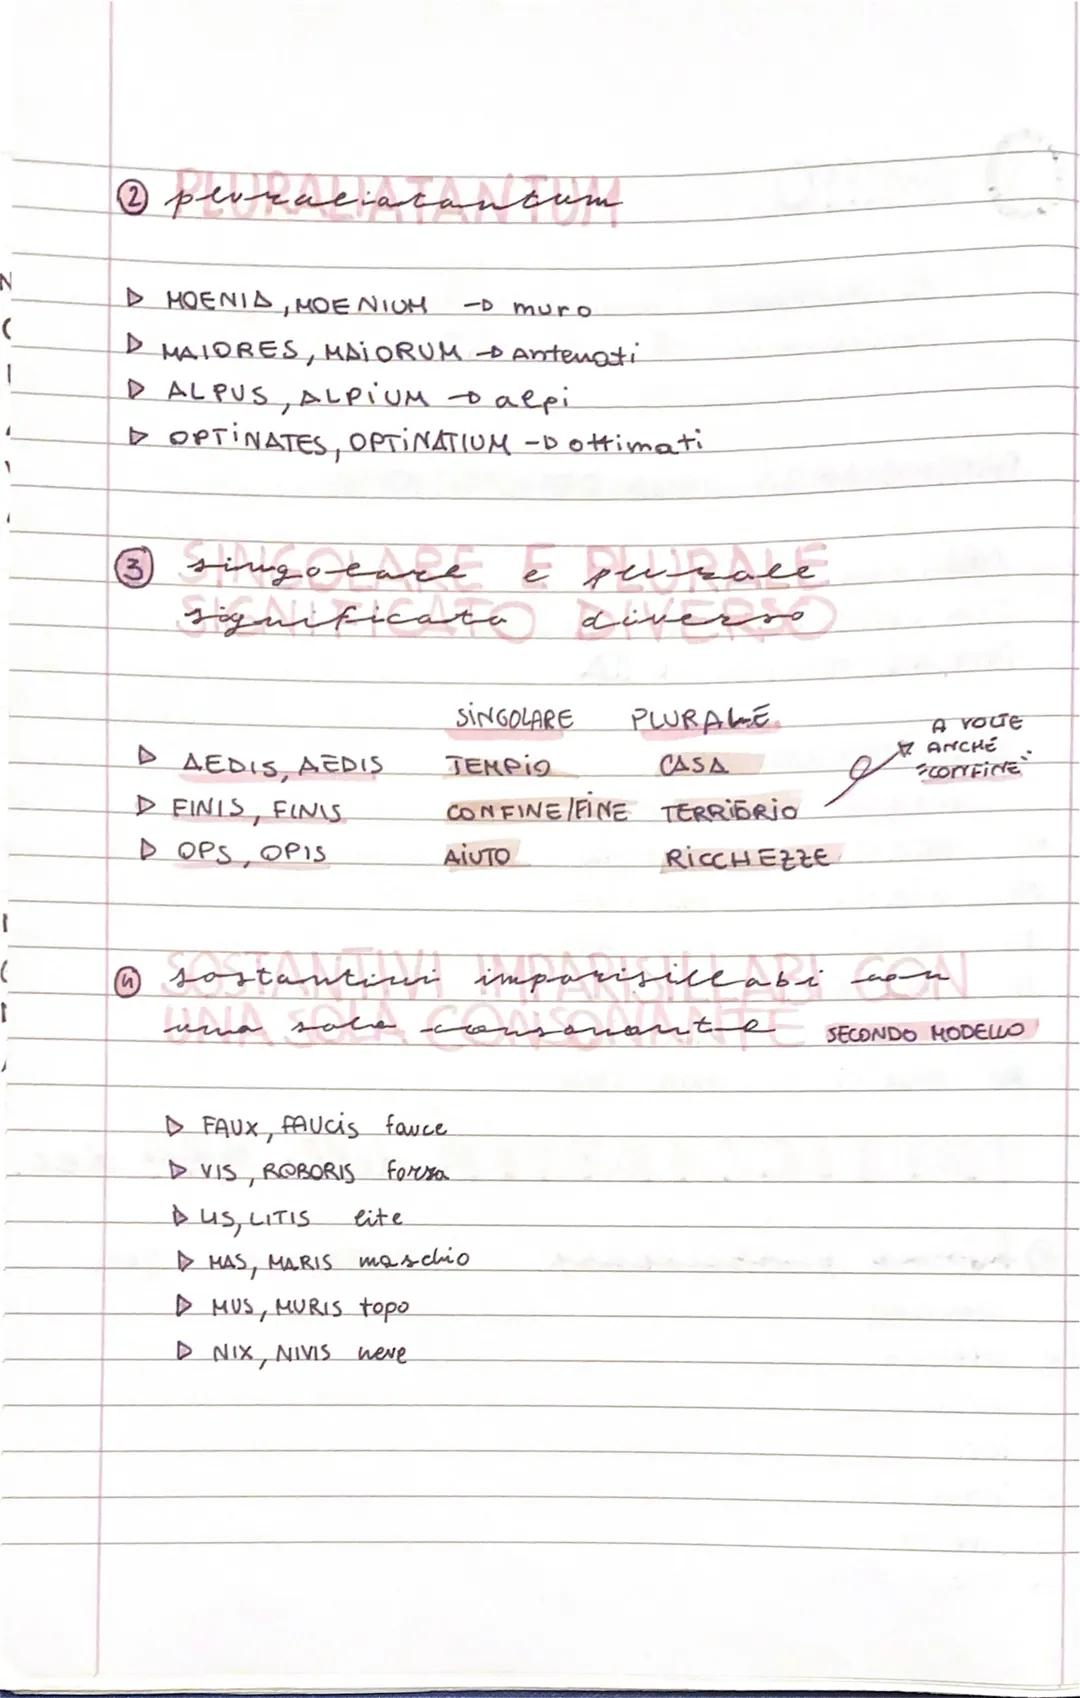 2 PLURALIATANTUM
pluraliatantum
MOENIA, MOENIUM → muro
MAIORES, MAIORUM → Antenati
ALPUS, ALPIUM → alpi
OPTINATES, OPTINATIUM → ottimati
3 SINGOLARE E PLURALE
singolare e plurale
SIGNIFICATO DIVERSO
significato diverso
SINGOLARE PLURALE
AEDIS, AEDIS TEMPIO CASA
A VOLTE
ANCHE
"CONFINE"
FINIS, FINIS CONFINE/FINE
OPS, OPIS AIUTO RICCHEZZE
4 SOSTANTIVI IMPARISILLABI CON
sostantivi imparisillabi con
UNA SOLA CONSONANTE
una sola consonante SECONDO MODELLO
FAUX, FAUCIS fauce
VIS, ROBORIS forza
LIS, LITIS lite
MAS, MARIS maschio
MUS, MURIS topo
NIX, NIVIS neve